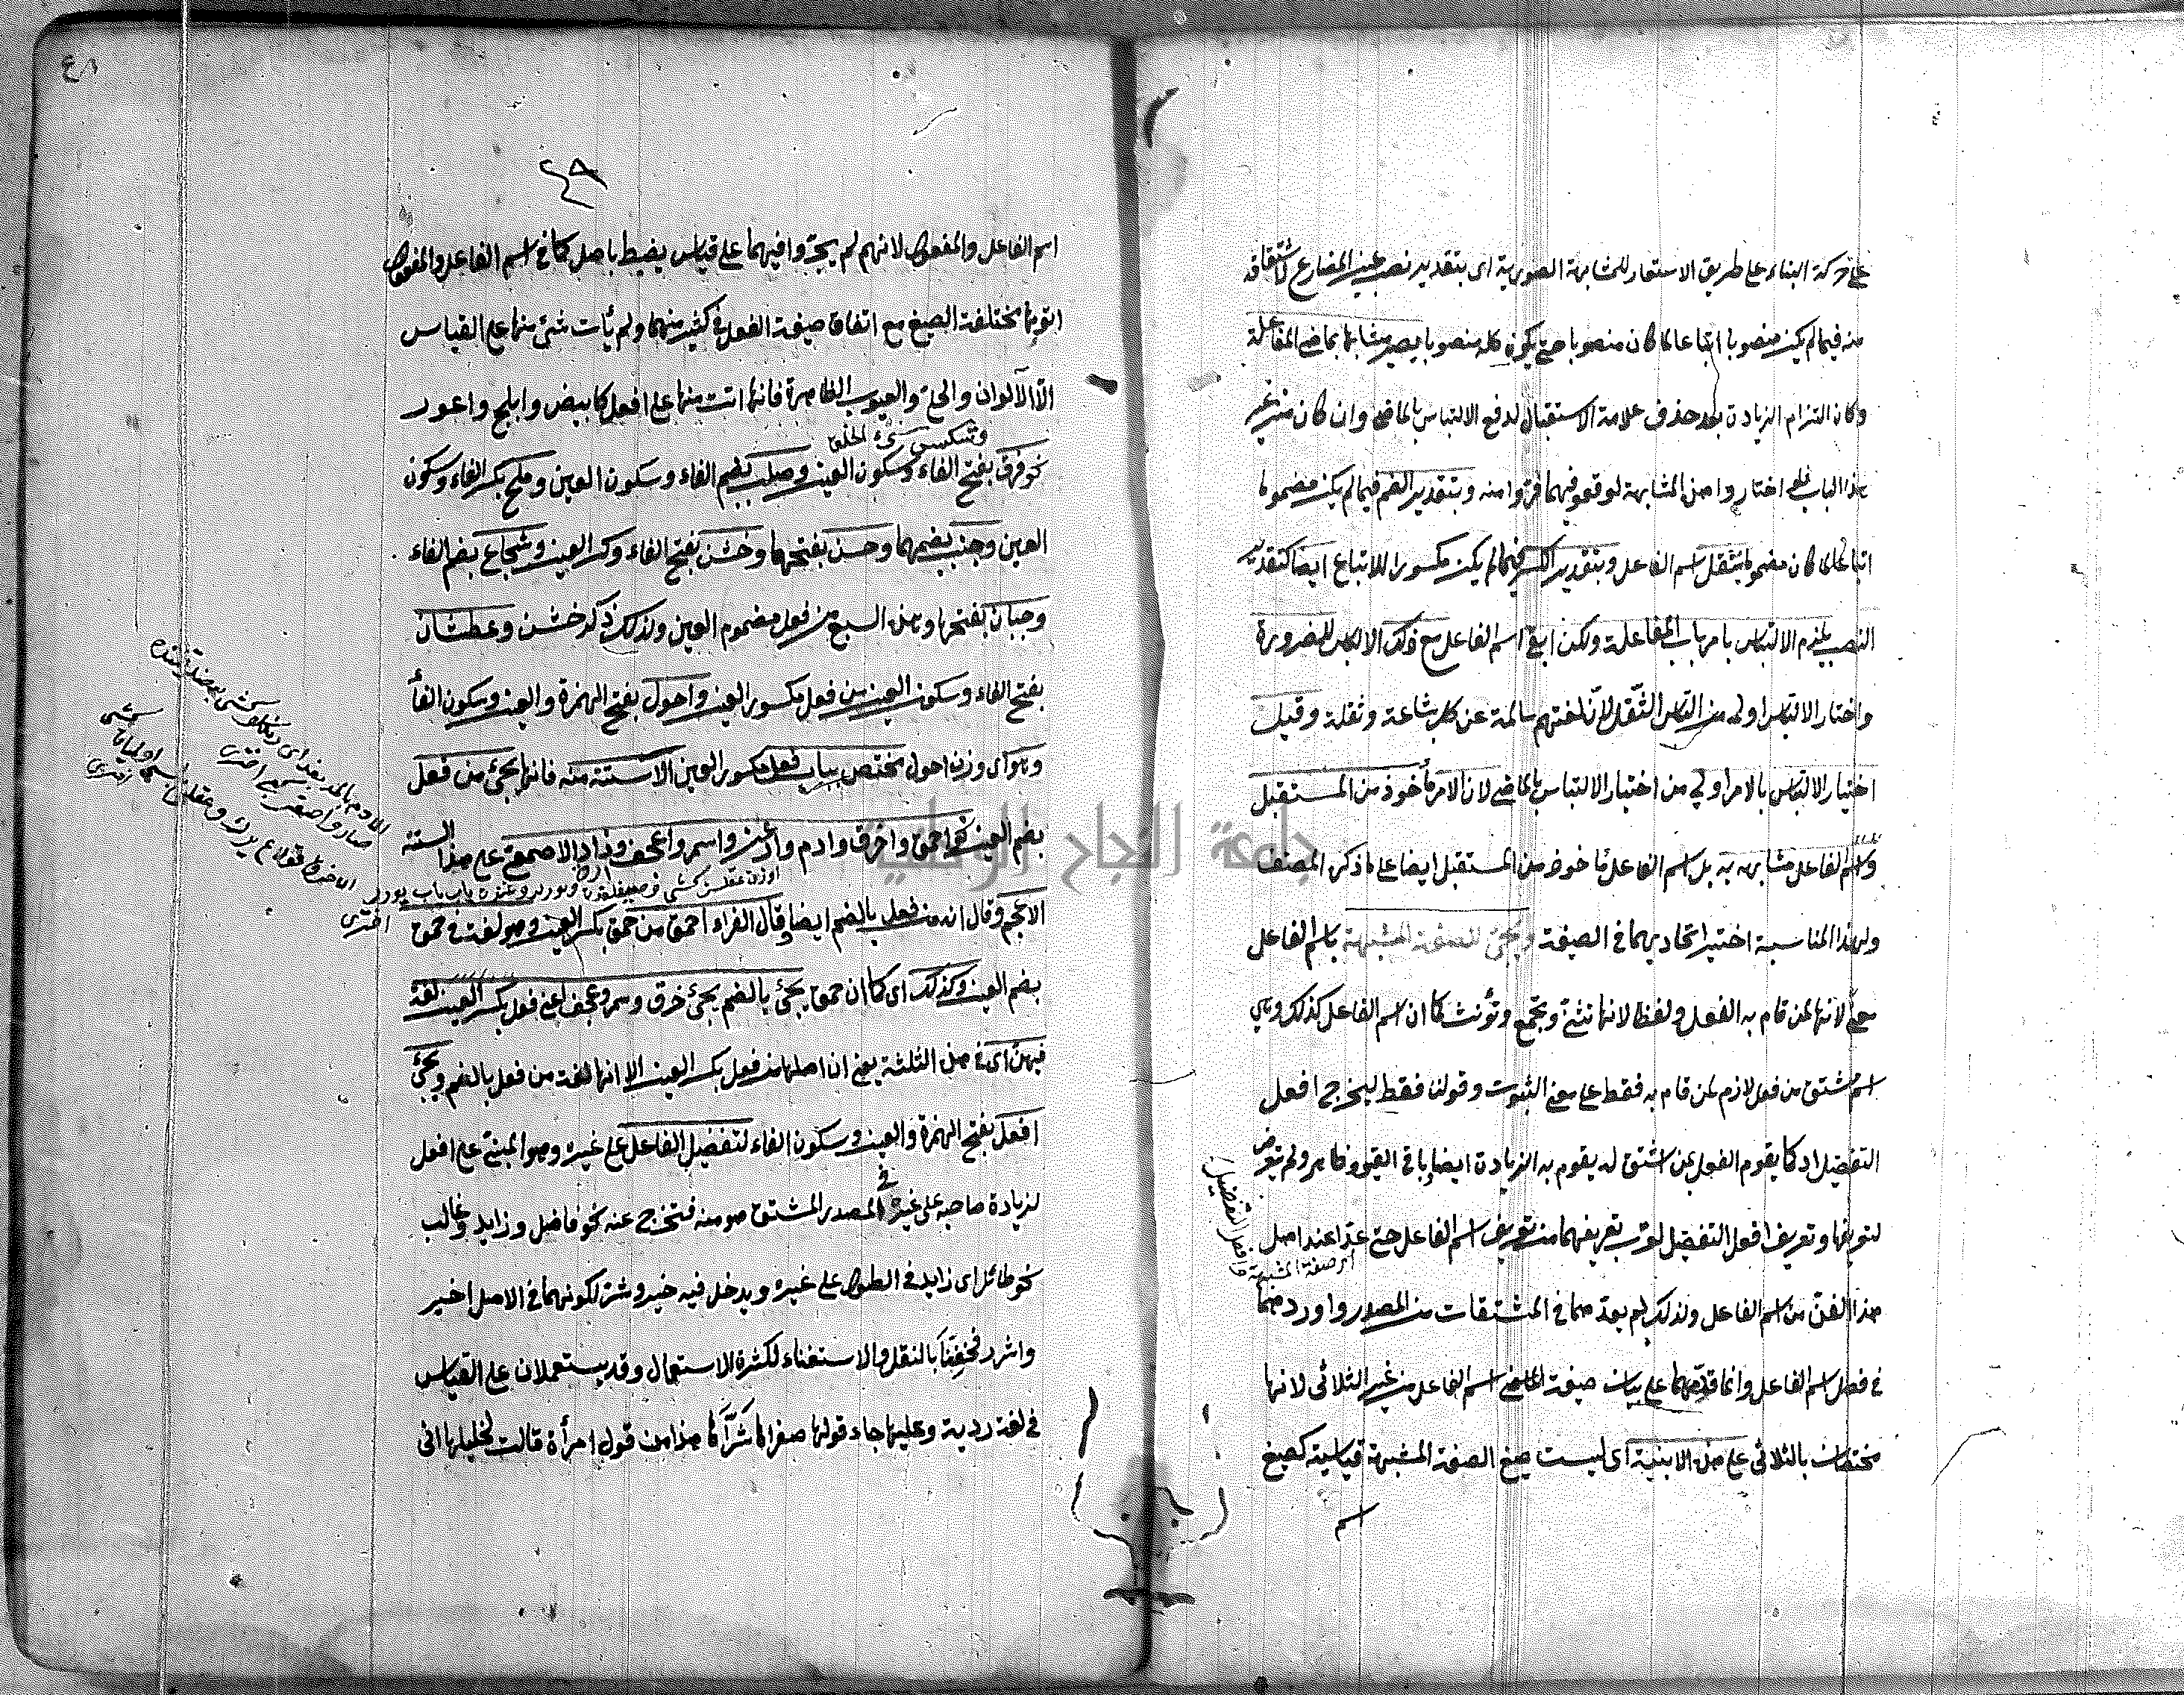 على حركة البناء على طريق الاستعار للمشابهة الصورية اى بتقدير نصب عين المضارع لاشتقاقه
منه فيما لم يكن منصوبا اتباعا لما كان منصوبا حتى يكون كله منصوبا يصير مشابها بماضى المفاعلة
وكان التزام الزيادة بعد حذف علامة الاستقبال لدفع الالتباس بالماضى وان كان من غير
هذا الباب فلو اختاروا هذه المشابهة لوقعوا فيما فروا منه وبتقدير الضم فيما لم يكن مضموما
اتباعا لما كان مضموما يثقل اسم الفاعل وبتقدير الكسر فيما لم يكن مكسورا للاتباع ايضا كتقدير
النصب يلزم الالتباس بامر باب المفاعلة ولكن ابقى اسم الفاعل مع ذلك الالتباس للضرورة
واختار الالتباس اولى من التباس الثقل لان لغتهم سالمة عن كل بشاعة وثقلة وقيل
اختيار الالتباس بالامر اولى من اختيار الالتباس بالماضى لان الامر مأخوذ من المستقبل
واسم الفاعل مشابه به بل اسم الفاعل مأخوذ من المستقبل ايضا على ما ذكره المصنف
ولهذا المناسبة اختير اتحاديهما فى الصيغة ويجئ الصفة المشبهة باسم الفاعل
معنى لانها لمن قام به الفعل ولفظا لانها تثنى وتجمع وتؤنث كما ان اسم الفاعل كذلك وهى
اسم مشتق من فعل لازم لمن قام به فقط على معنى الثبوت وقولنا فقط ليخرج افعل
التفضيل اذ كما يقوم الفعل بمن اشتق له يقوم به الزيادة ايضا وباقى القيود ظاهر ولم يتعرض
لتعريفها وتعريف افعل التفضيل لقرب تعريفهما من تعريف اسم الفاعل حتى عدا عند اهل
اى صفة المشبهة وافعل التفضيل
هذا الفن من اسم الفاعل ولذلك لم يعدهما فى المشتقات من المصدر واوردهما
فى فصل اسم الفاعل وانما قدمهما على بيان صيغة اسم الفاعل من غير الثلاثى لانها
مختصان بالثلاثى على هذه الابنية اى ليست صيغ الصفة المشبهة قياسية كصيغ
اسم
٤٩
اسم الفاعل والمفعول لانهم لم يجروا فيهما على قياس يضبط باصل كما فى اسم الفاعل والمفعول
مختلفة الصيغ مع اتفاق صيغة الفعل فى كثير منهما ولم يأت شئ منها على القياس
الا الالوان والحلى والعيوب الظاهرة فانها اتت منها على افعل كابيض وابلج واعور
وشكس سئ الخلق
نحو فرق بفتح الفاء وسكون العين وصلب بضم الفاء وسكون العين وملح بكسر الفاء وسكون
العين وجنب بضمهما وحسن بفتحهما وخشن بفتح الفاء وكسر العين وشجاع بضم الفاء
وجبان بفتحها وهذه السبع من فعل مضموم العين ولذلك ذكر خشن وعطشان
بفتح الفاء وسكون العين من فعل مكسور العين واحول بفتح الهمزة والعين وسكون الفاء
وهو اى وزن احول مختص بباب فعل مكسور العين الا ستة منه فانها يجئ من فعل
بضم العين نحو احمق واخرق وادم وارعن واسمر واعجف وزاد الاصمعى على هذا الستة
الاعجم وقال انه من فعل بالضم ايضا وقال الفراء احمق من حمق بكسر العين وهو لغة فى حمق
بضم العين وكذلك اى كما ان حمق يجئ بالضم يجئ خرق وسمر وعجف اعنى فعل بكسر العين لغة
فيهن اى فى هذه الثلثة يعنى ان اصلها من فعل بكسر العين الا انها لغة من فعل بالضم ويجئ
افعل بفتح الهمزة والعين وسكون الفاء لتفضيل الفاعل على غيره وهو المبنى على افعل
لزيادة صاحبه على غيره فى المصدر المشتق هو منه فتخرج عنه نحو فاضل وزايد وغالب
نحو طائل اى زايد فى الطول على غيره ويدخل فيه خير وشر لكونهما فى الاصل اخير
واشرر فخففتا بالنقل والاستغناء لكثرة الاستعمال وقد يستعملان على القياس
فى لغة ردية وعليها جاء قولها صغراها شراها هذا من قول امرأة قالت لخليلها انى
جامعة النجاح الوطنية